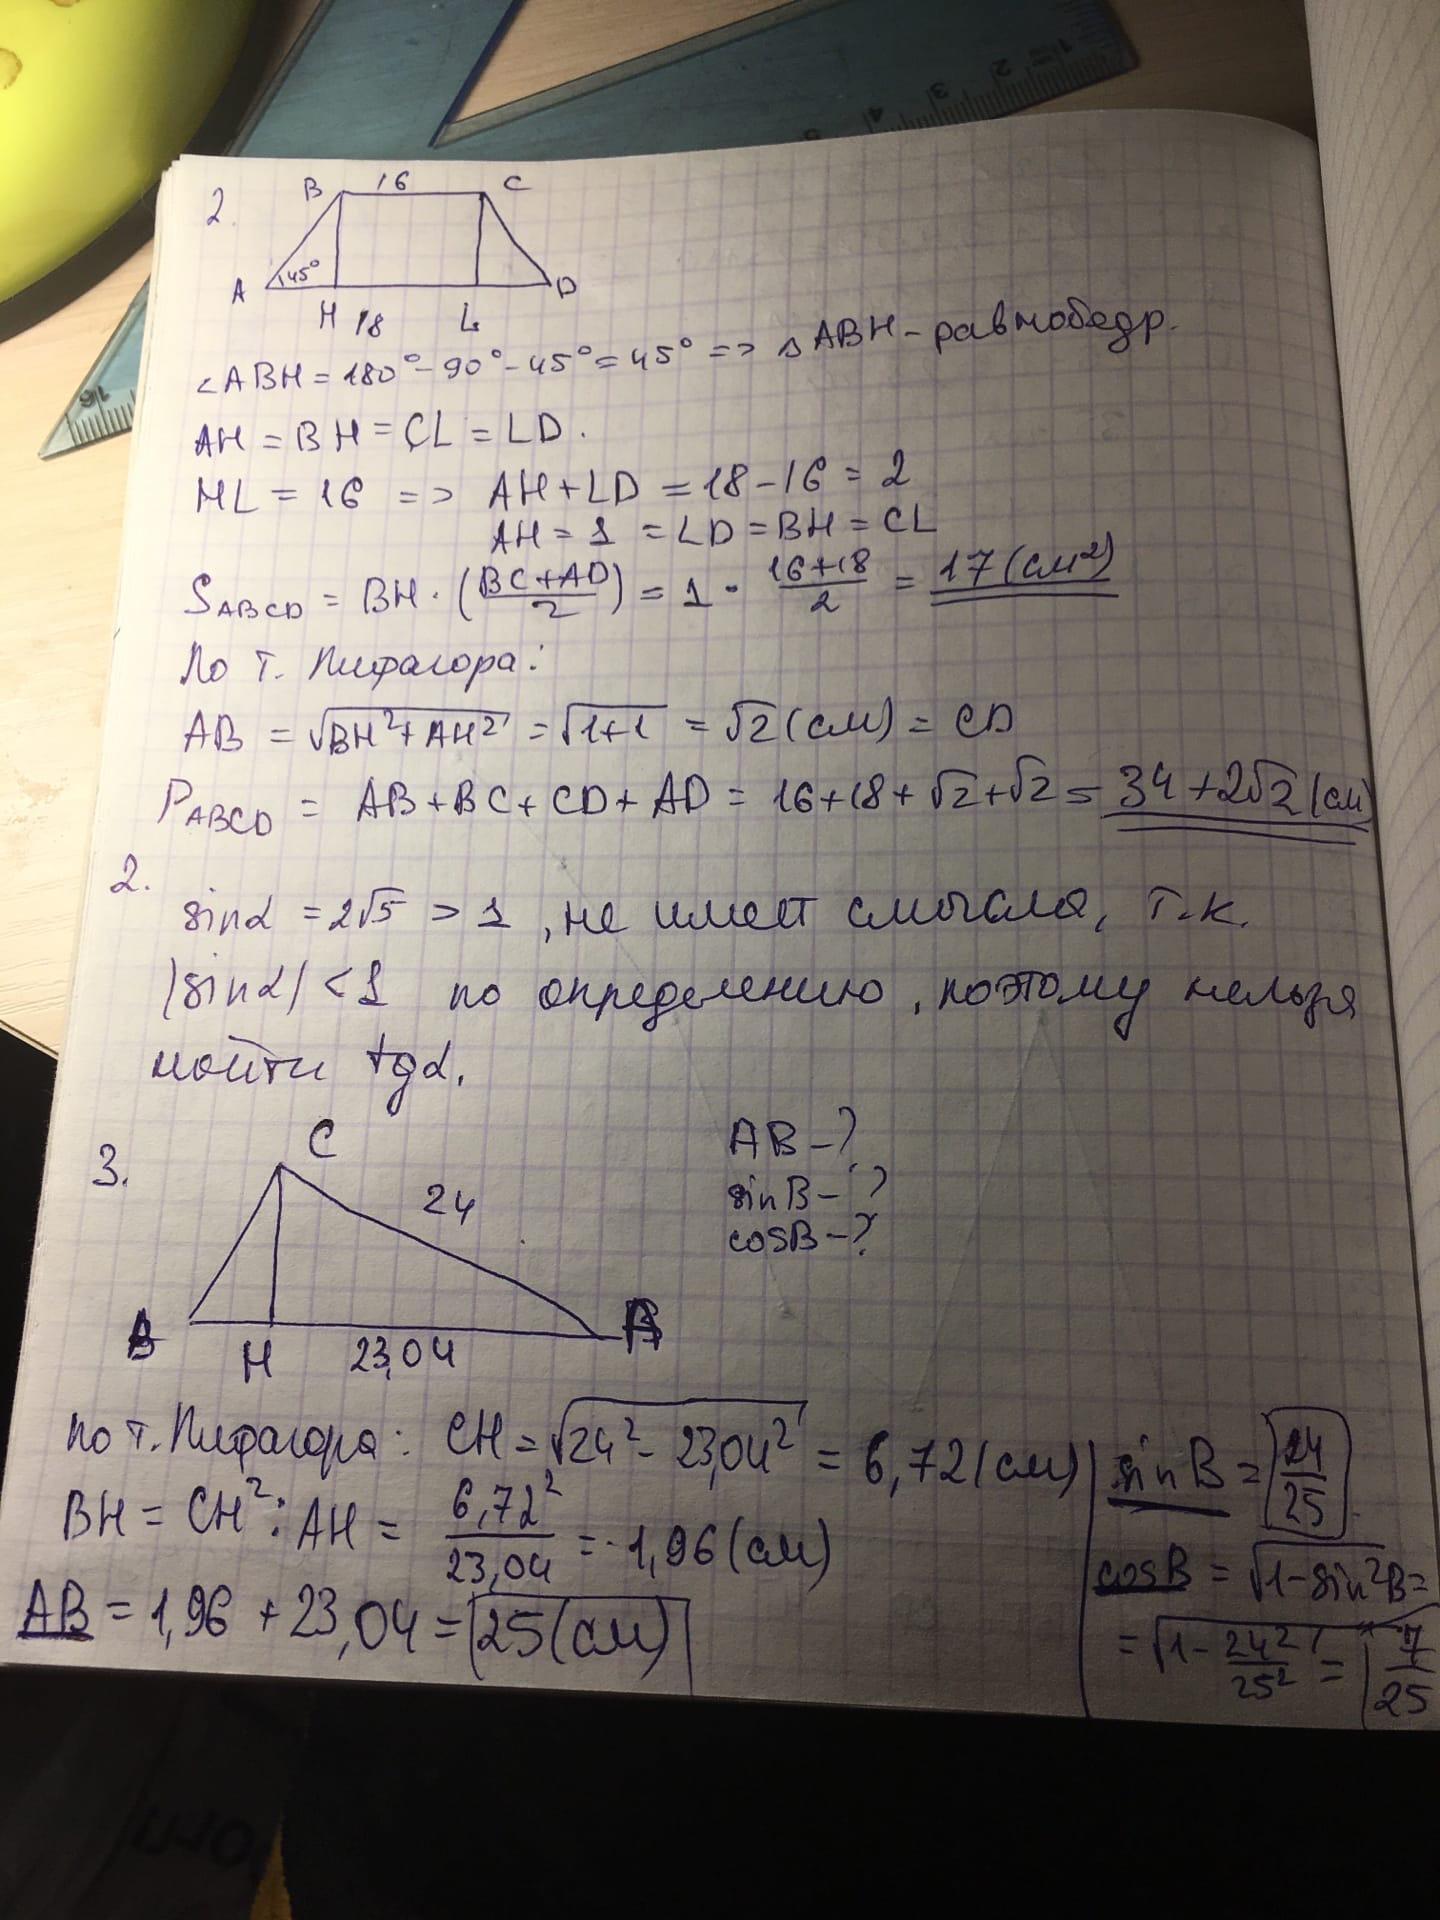 2.
B 16 C
45°
A H 18 L D
∠ABH = 180° - 90° - 45° = 45° => △ABH - равнобедр.
AH = BH = CL = LD.
HL = 16 => AH + LD = 18 - 16 = 2
AH = 1 = LD = BH = CL
S ABCD = BH · (BC + AD / 2) = 1 · 16+18 / 2 = 17 (см²)
По т. Пифагора:
AB = √BH² + AH² = √1+1 = √2 (см) = CD
P ABCD = AB + BC + CD + AD = 16 + 18 + √2 + √2 = 34 + 2√2 (см)
2.
sinα = 2√5 > 1, не имеет смысла, т.к.
|sinα| < 1 по определению, поэтому нельзя
найти tgα.
3.
C
24
B H 23,04 A
AB - ?
sinB - ?
cosB - ?
По т. Пифагора: CH = √24² - 23,04² = 6,72 (см)
BH = CH² : AH = 6,72² / 23,04 = 1,96 (см)
AB = 1,96 + 23,04 = 25 (см)
sinB = 24/25
cosB = √1 - sin²B =
= √1 - 24²/25² = 7/25
1 2 3 4 5
16